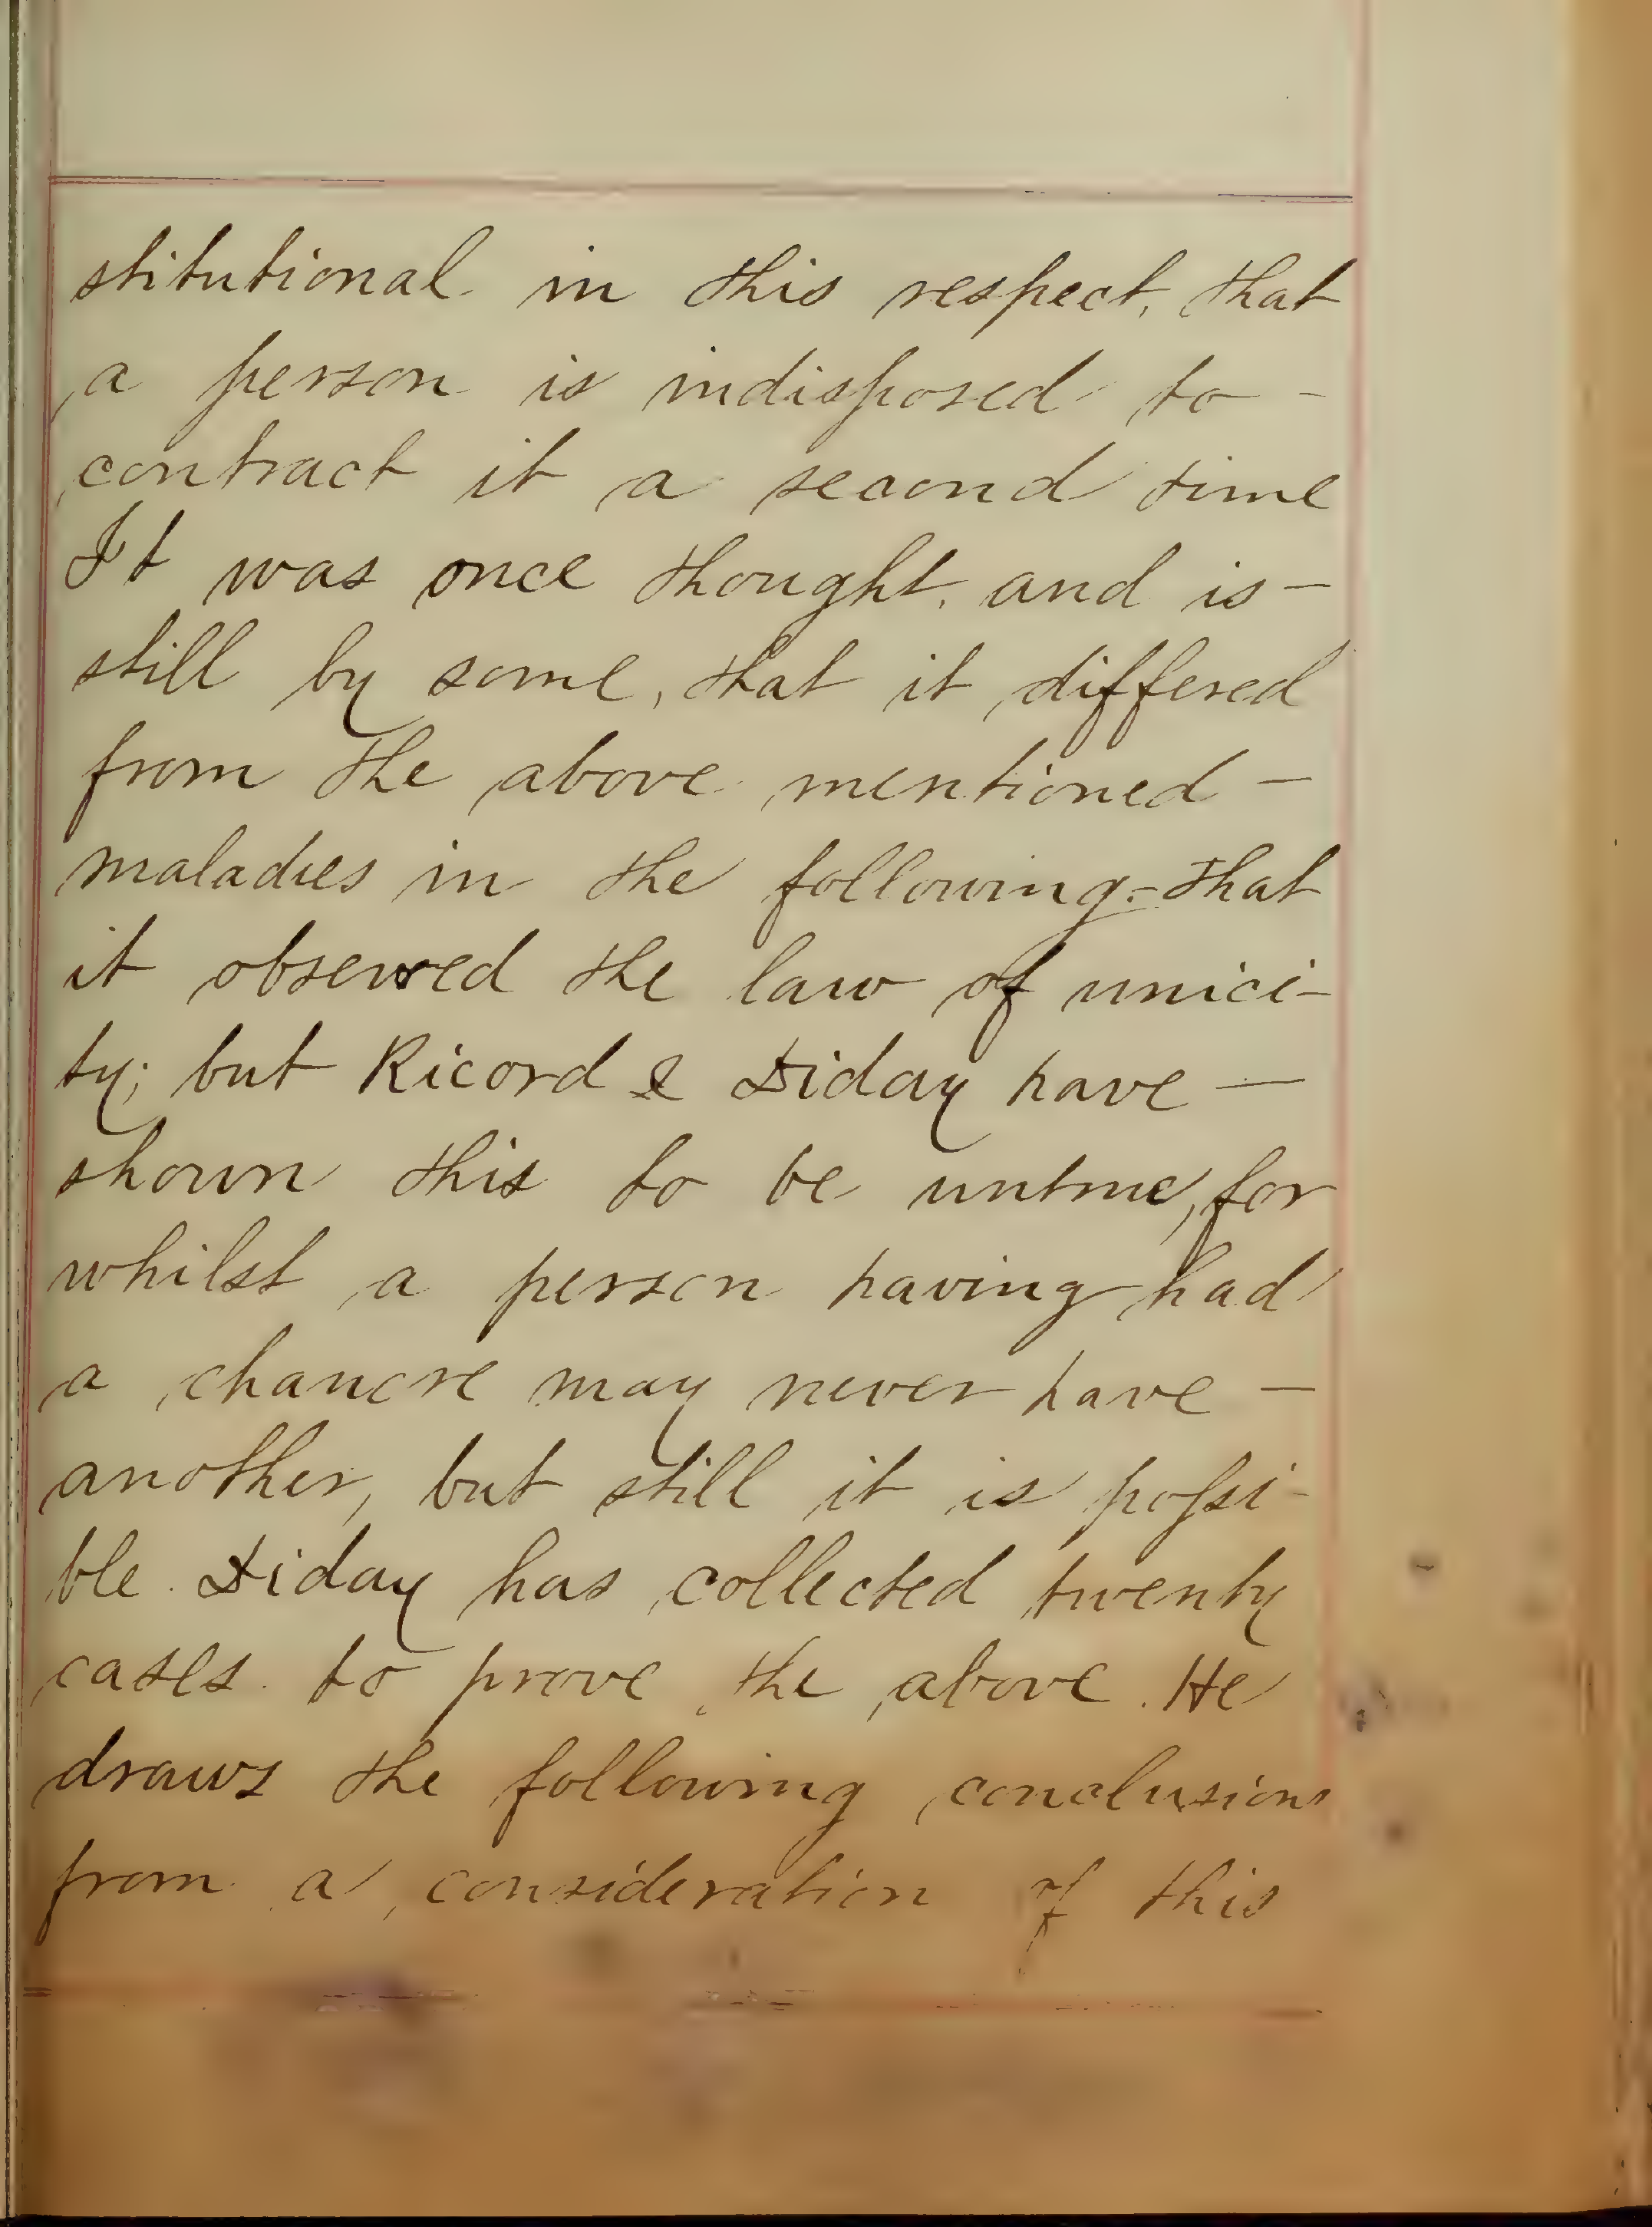 stitutional in this respect, that
a person is indisposed to -
contract it a second time
It was once thought, and is -
still by some, that it differed
from the above mentioned -
maladies in the following:- that
it observed the law of unici-
ty; but Ricord & Diday have -
shown this to be untrue, for
whilst a person having had
a chancre may never have -
another, but still it is possi-
ble. Diday has collected twenty
cases to prove the above. He
draws the following conclusions
from a consideration of this